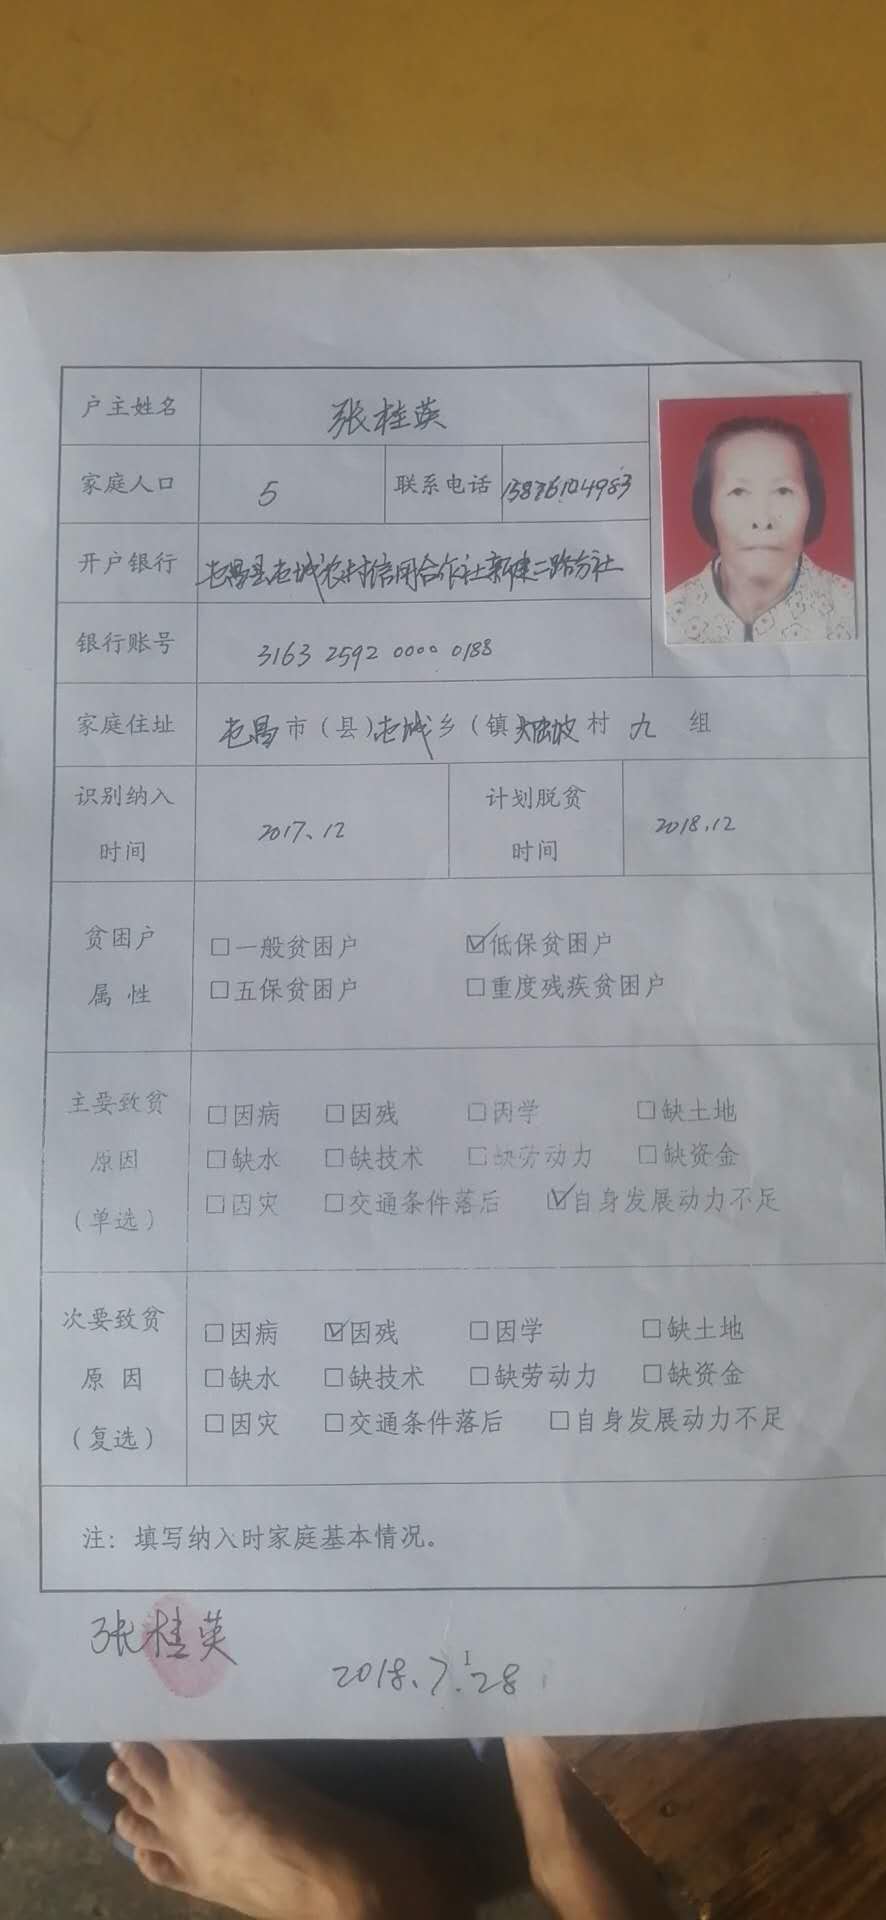 户主姓名 张桂英
家庭人口 5 联系电话 13876104983
开户银行 屯昌县屯城农村信用合作社新建二路分社
银行账号 3163 2592 0000 0188
家庭住址 屯昌市（县）屯城乡（镇 大陆坡村 九 组
识别纳入 计划脱贫
时间 2017、12 时间 2018.12
贫困户 □一般贫困户 ☑低保贫困户
属 性 □五保贫困户 □重度残疾贫困户
主要致贫 □因病 □因残 □因学 □缺土地
原因 □缺水 □缺技术 □缺劳动力 □缺资金
（单选） □因灾 □交通条件落后 ☑自身发展动力不足
次要致贫 □因病 ☑因残 □因学 □缺土地
原 因 □缺水 □缺技术 □缺劳动力 □缺资金
（复选） □因灾 □交通条件落后 □自身发展动力不足
注：填写纳入时家庭基本情况。
张桂英
2018.7.28
1